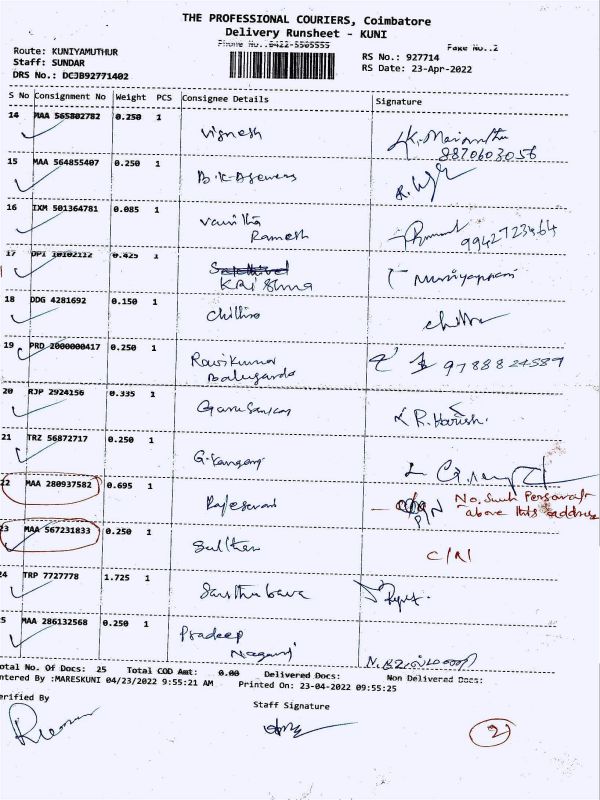 THE PROFESSIONAL COURIERS, Coimbatore
Delivery Runsheet - KUNI
Phone No..0422-5505555
Page No..2
Route: KUNIYAMUTHUR
Staff: SUNDAR
DRS No.: DCJB92771402
RS No.: 927714
RS Date: 23-Apr-2022
S No Consignment No Weight PCS Consignee Details Signature
14 MAA 565802782 0.250 1 Vignesh
8870603056
15 MAA 564855407 0.250 1
16 IXM 501364781 0.085 1 Vanitha
Ramesh 9942723464
17 OPI 10102112 0.425 1
Krishna Muniyappan
18 DDG 4281692 0.150 1 Chithra Chithra
19 PRD 2000000417 0.390 1 Ravikumar
9788824589
20 RJP 2924156 0.335 1 R. Harish.
21 TRZ 56872717 0.250 1 G. Kangeni
22 MAA 280937582 0.695 1 Rajeswari No, Such Person at
above this address
23 MAA 567231833 0.250 1 Sulthan C/N
24 TRP 7727778 1.725 1
25 MAA 286132568 0.250 1 Pradeep
Nagaraj
Total No. Of Docs: 25 Total COD Amt: 0.00 Delivered Docs: Non Delivered Docs:
Entered By :MARESKUNI 04/23/2022 9:55:21 AM Printed On: 23-04-2022 09:55:25
Verified By
Staff Signature
2